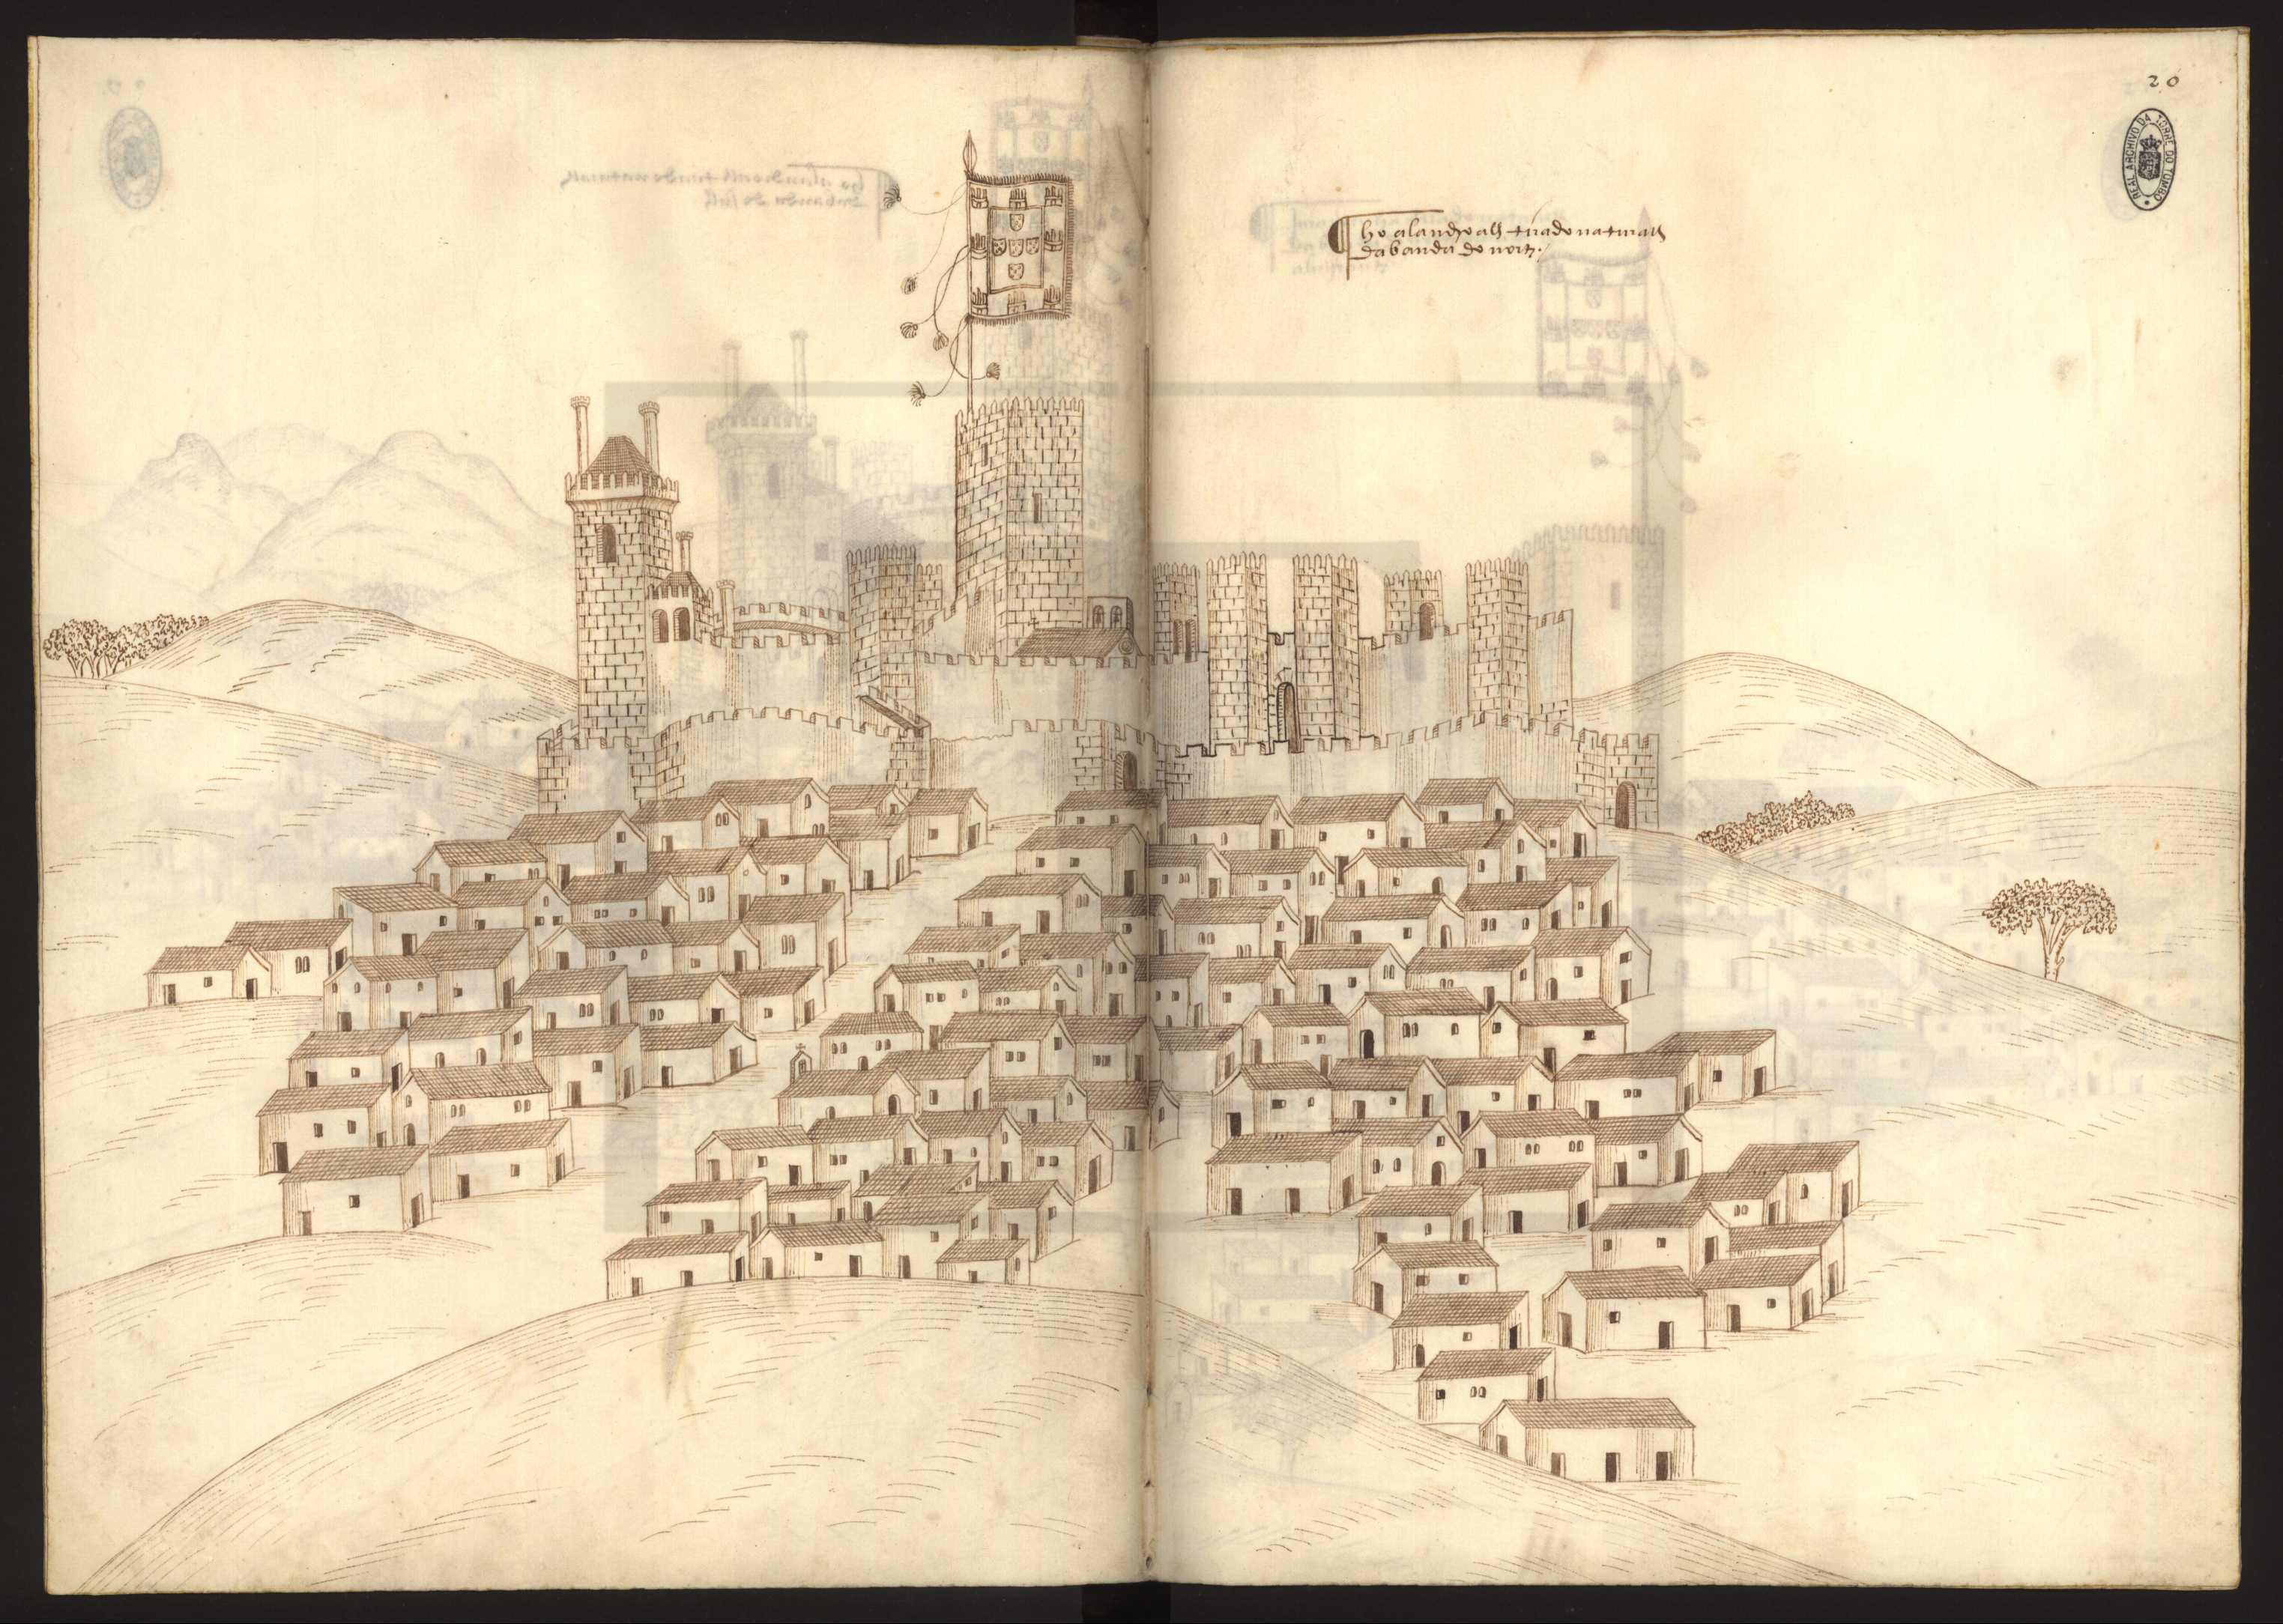 20
REAL ARCHIVO DA TORRE DO TOMBO
ho alandroall tirado natural
da banda do norte